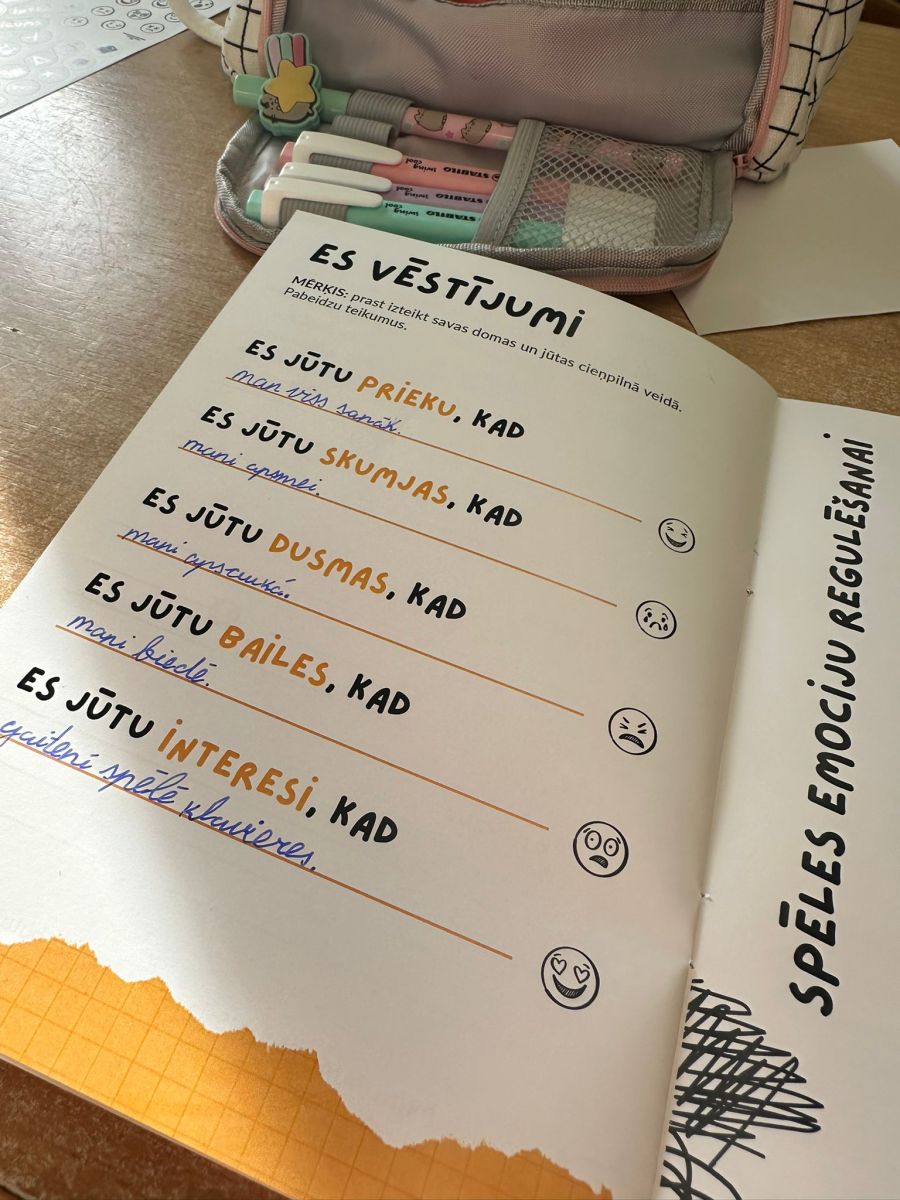 STABILO swing cool
STABILO swing cool
STABILO swing cool
ES VĒSTĪJUMI
MĒRĶIS: prast izteikt savas domas un jūtas cieņpilnā veidā.
Pabeidzu teikumus.
ES JŪTU PRIEKU, KAD
man viss sanāk.
ES JŪTU SKUMJAS, KAD
mani apsmej.
ES JŪTU DUSMAS, KAD
mani apsaukā.
ES JŪTU BAILES, KAD
mani biedē.
ES JŪTU INTERESI, KAD
gaitenī spēlē klavieres.
SPĒLES EMOCIJU REGULĒŠANAI